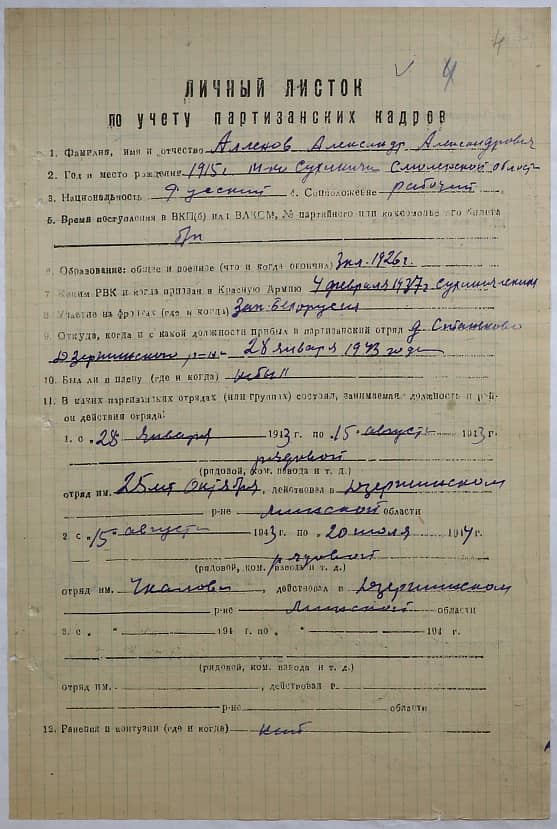 4
V 4
ЛИЧНЫЙ ЛИСТОК
по учету партизанских кадров
1. Фамилия, имя и отчество Алленов Александр Александрович
2. Год и место рождения 1915г. м-ко Сухиничи Смоленской области
3. Национальность Русский 4. Соцположение рабочий
5. Время поступления в ВКП(б) или ВЛКСМ, № партийного или комсомольского билета
б/п
6. Образование: общее и военное (что и когда окончил) 3 кл. 1926г.
7. Каким РВК и когда призван в Красную Армию 4 февраля 1937г Сухиническим
8. Участие на фронтах (где и когда) Зап. Белоруссия
9. Откуда, когда и с какой должности прибыл в партизанский отряд д. Станьково
Дзержинского р-на 28 января 1943 года
10. Был ли в плену (где и когда) не был
11. В каких партизанских отрядах (или группах) состоял, занимаемая должность и рай-
он действия отряда:
1. с „28 января 1943 г. по „15 августа 1943 г.
рядовой
(рядовой, ком. взвода и т. д.)
отряд им. 25 лет Октября, действовал в Дзержинском
р-не Минской области
2. с „15 августа 1943 г. по „20 июля 1944 г.
рядовой
(рядовой, ком. взвода и т. д.)
отряд им. Чкалова, действовал в Дзержинском
р-не Минской области
3. с „ " 194 г. по „ " 194 г.
(рядовой, ком. взвода и т. д.)
отряд им. , действовал в
р-не области
12. Ранения и контузии (где и когда) нет